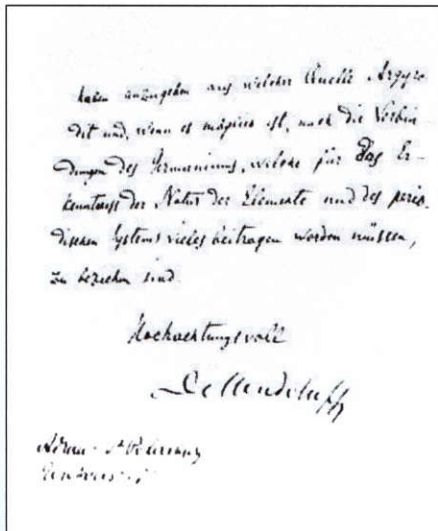 haben anzugeben aus welcher Quelle Argyro-
dit und, wenn es möglich ist, auch die Verbin-
dungen des Germaniums, welche für das Er-
kenntniss der Natur der Elemente und des perio-
dischen Systems vieles beitragen worden müssen,
zu beziehen sind.
Hochachtungsvoll
D. Mendeleeff